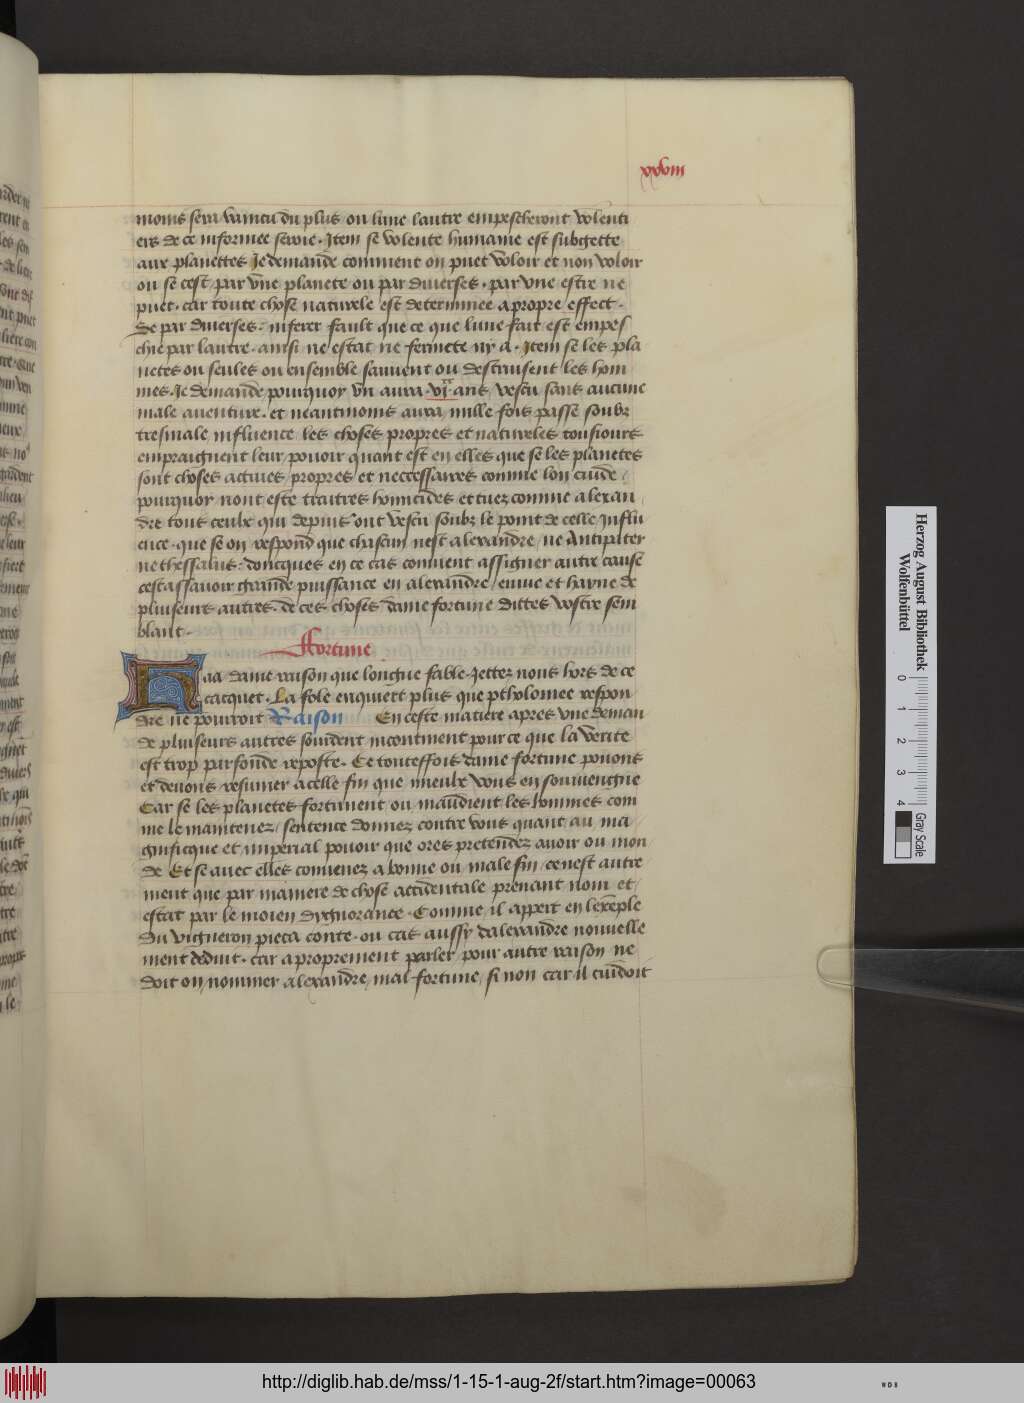 xxviii
moins sera vaincu du plus ou lune lautre empescheront volenti
ers de ce informee seroie. Item se volente humaine est subgette
aux planettes Je demande comment on puet voloir et non voloir
ou se cest par vne planete ou par diuerses. par vne estre ne
puet. car toute chose naturele est determinee a propre effect.
Se par diuerses: inferer fault que ce que lune fait est empes
chie par lautre. ainsi ne estat ne fermete ny a. Item se les pla
netes ou seules ou ensemble sauuent ou destruisent les hom
mes. Je demande pourquoy vn aura ans vescu sans aucune
male auenture. et neantmoins aura mille fois passe soubz
tresmale influence les choses propres et natureles tousiours
empraignent leur pouoir quant est en elles que se les planetes
sont choses actiues propres et neccessaires comme lon cuide /
pourquoy nont este traitres homicides et tuez comme alexan
dre tous ceulx qui depuis ont vescu soubz le point de celle Influ
ence. que se on respond que chascun nest alexandre / ne Antipater
ne thessalus: doncques en ce cas conuient assigner autre cause
cest assauoir grande puissance en alexandre / enuie et hayne de
pluiseurs autres. de ces choses dame fortune dittes vostre sem
blant.
Ffortune
Haa dame raison que longue fable. Jettez nous hors de ce
cacquet. La fole enquiert plus que ptholomee respon
dre ne pourroit Raison En ceste matiere apres vne deman
de pluiseurs autres sourdent incontinent pour ce que la verite
est trop parfonde reposte. Ce touteffois dame fortune pouons
et deuons resumer a celle fin que mieulx vous en souuiengne
Car se les planetes fortunent ou maudient les hommes com
me le maintenez / sentence donnez contre vous quant au ma
gnificque et imperial pouoir que ores pretendez auoir ou mon
de Et se auec elles conuenez a bonne ou male fin / ce nest autre
ment que par maniere de chose accidentale prenant nom et /
estat par le moien dygnorance. Comme il appert en lexeple
du vigneron pieca conte. ou cas aussy dalexandre nouuelle
ment deduit. car a proprement parler pour autre raison ne
doit on nommer alexandre mal fortune / si non car il cuidoit
Herzog August Bibliothek
Wolfenbüttel
0 1 2 3 4
Gray Scale
http://diglib.hab.de/mss/1-15-1-aug-2f/start.htm?image=00063